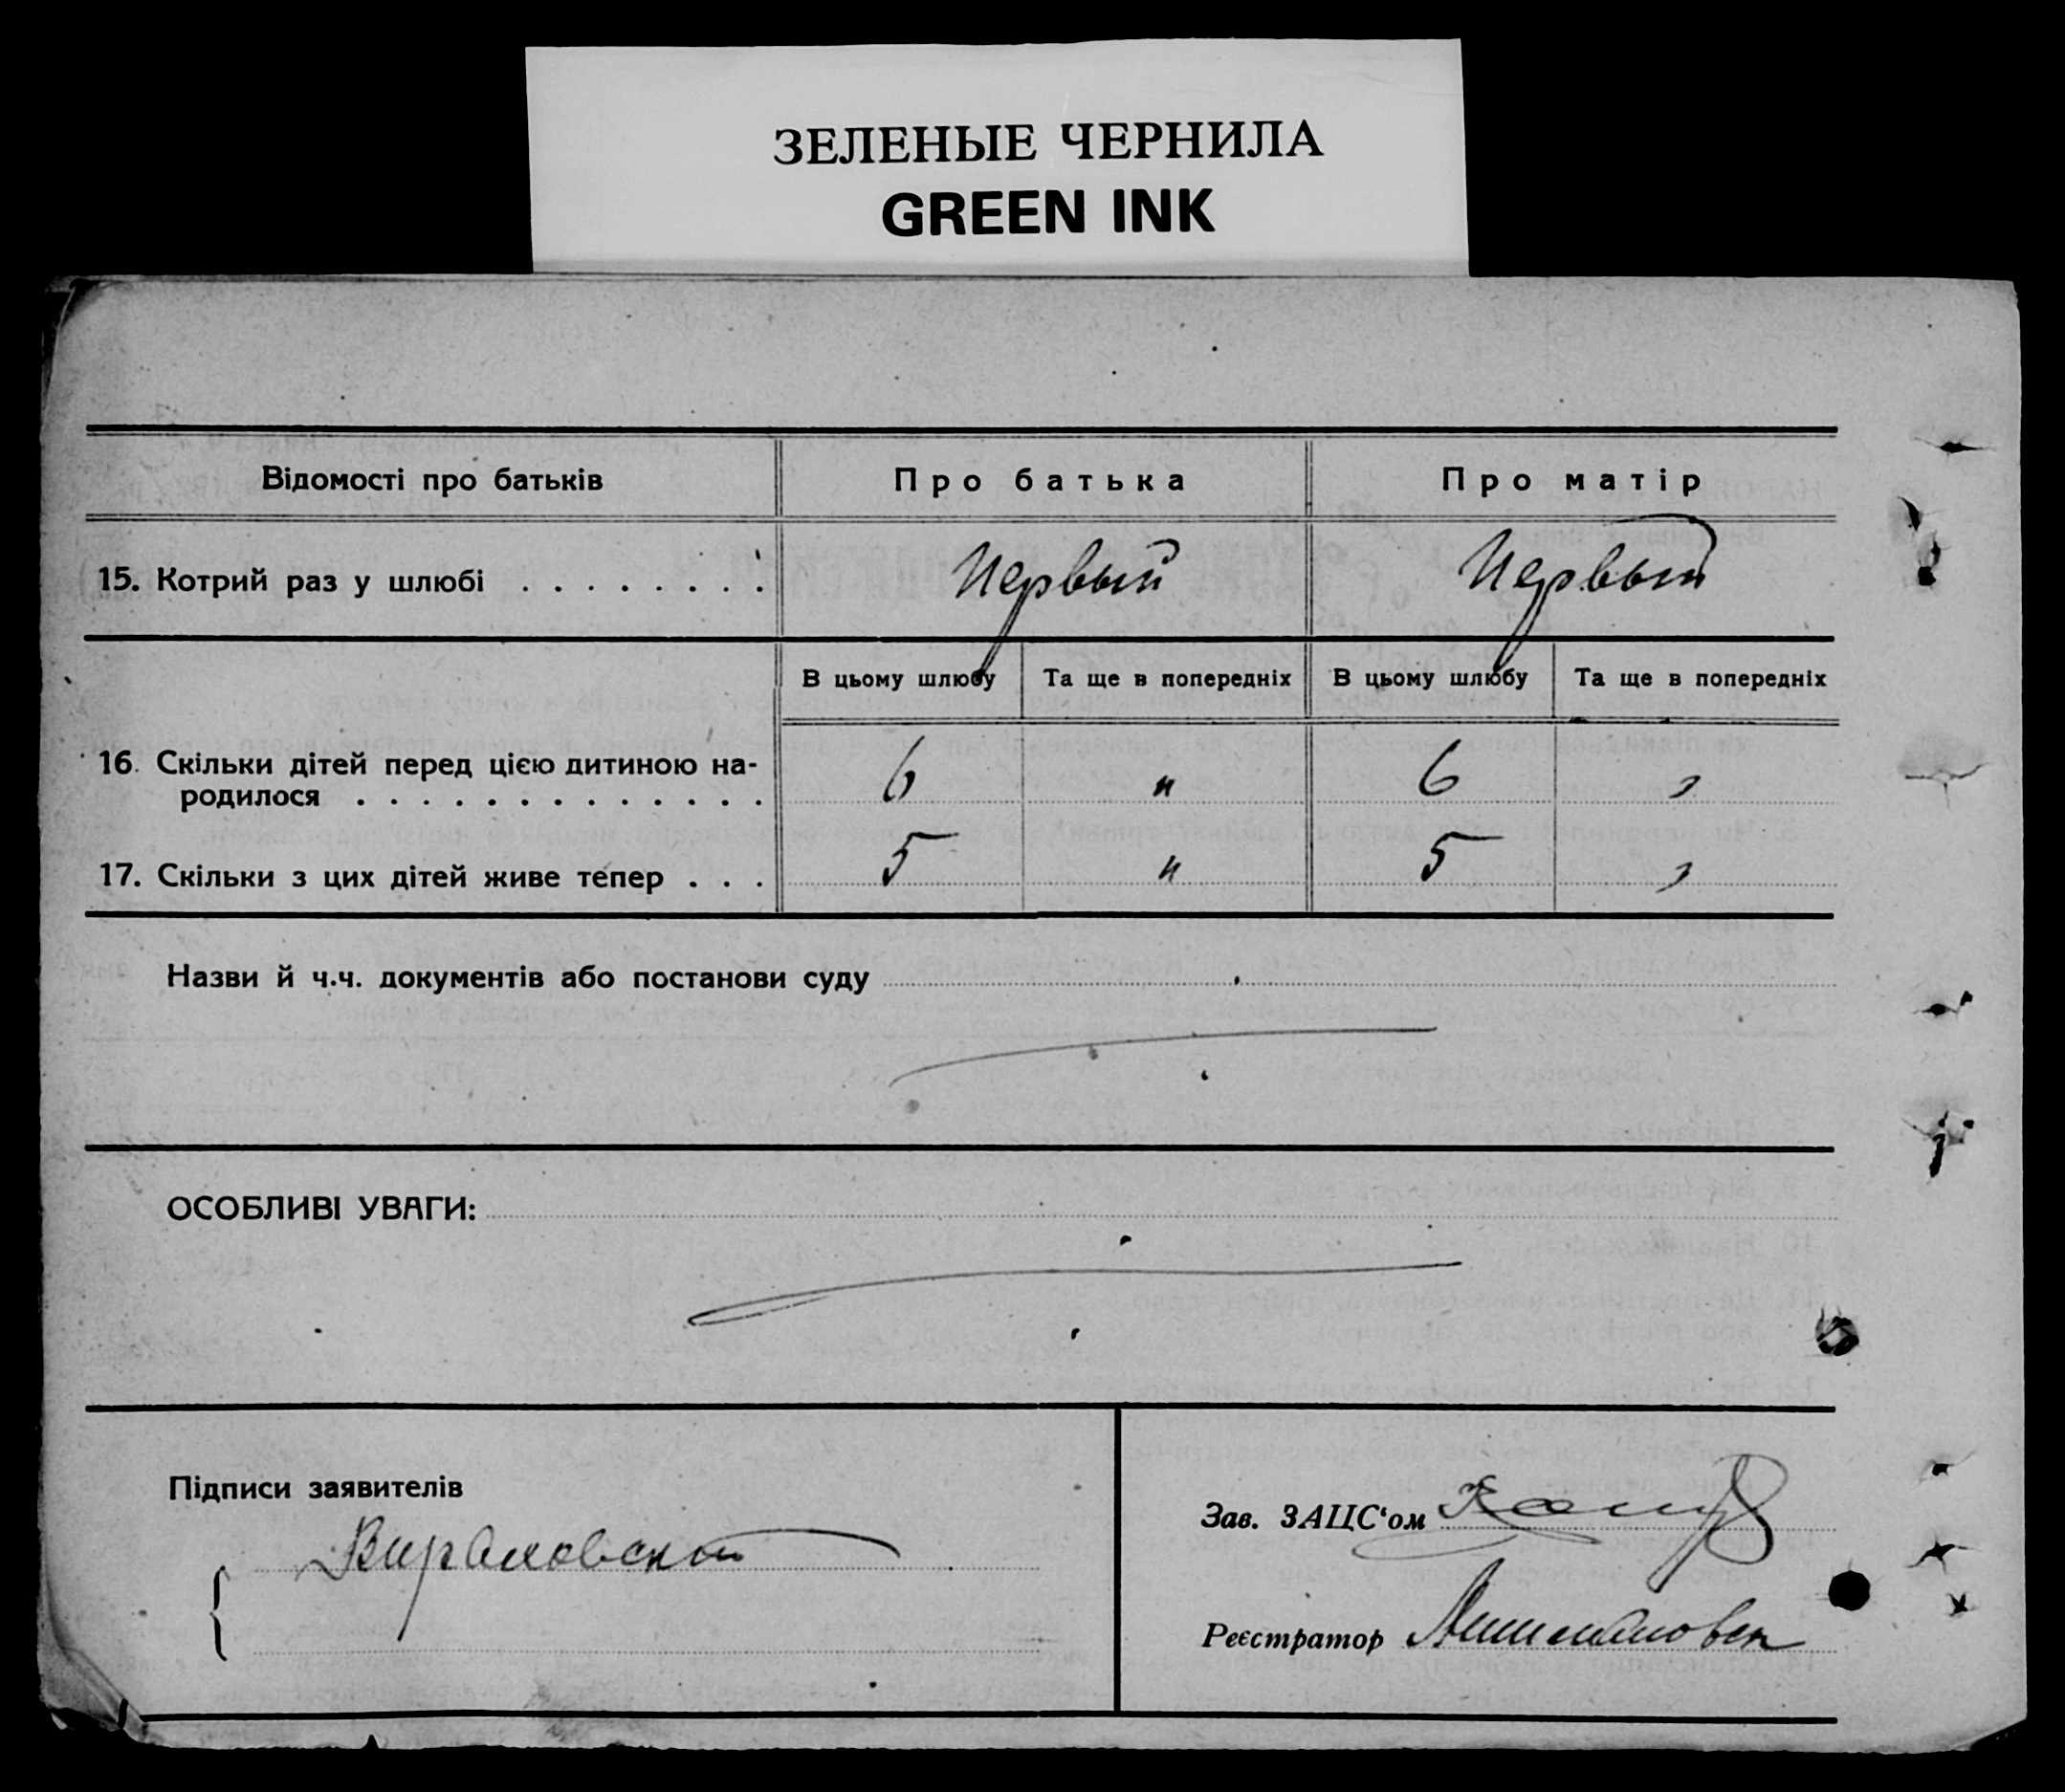 ЗЕЛЕНЫЕ ЧЕРНИЛА
GREEN INK
Відомості про батьків Про батька Про матір
15. Котрий раз у шлюбі . . . . . . . . Первый Первый
В цьому шлюбу Та ще в попередніх В цьому шлюбу Та ще в попередніх
16. Скільки дітей перед цією дитиною на-
родилося . . . . . . . . . . . . . . 6 " 6 "
17. Скільки з цих дітей живе тепер . . . 5 " 5 "
Назви й ч.ч. документів або постанови суду
ОСОБЛИВІ УВАГИ:
Підписи заявителів
Зав. ЗАЦС‘ом
Реєстратор